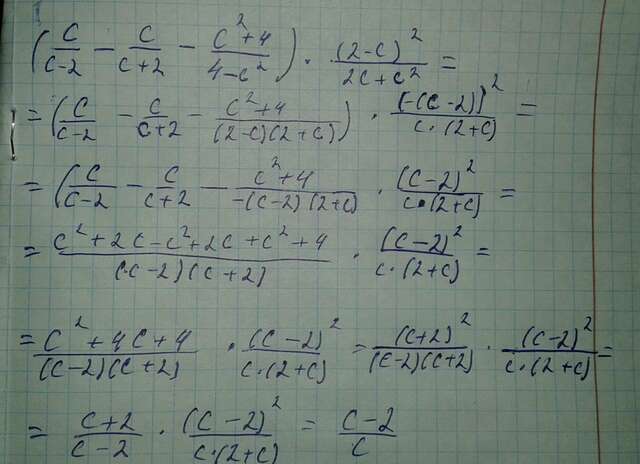 (c/(c-2) - c/(c+2) - (c²+4)/(4-c²)) · (2-c)²/(2c+c²) =
= (c/(c-2) - c/(c+2) - (c²+4)/((2-c)(2+c))) · (-(c-2))²/(c·(2+c)) =
= (c/(c-2) - c/(c+2) - (c²+4)/(-(c-2)(2+c)) · (c-2)²/(c·(2+c)) =
= (c²+2c-c²+2c+c²+4)/((c-2)(c+2)) · (c-2)²/(c·(2+c)) =
= (c²+4c+4)/((c-2)(c+2)) · (c-2)²/(c·(2+c)) = (c+2)²/((c-2)(c+2)) · (c-2)²/(c·(2+c)) =
= (c+2)/(c-2) · (c-2)²/(c·(2+c)) = (c-2)/c